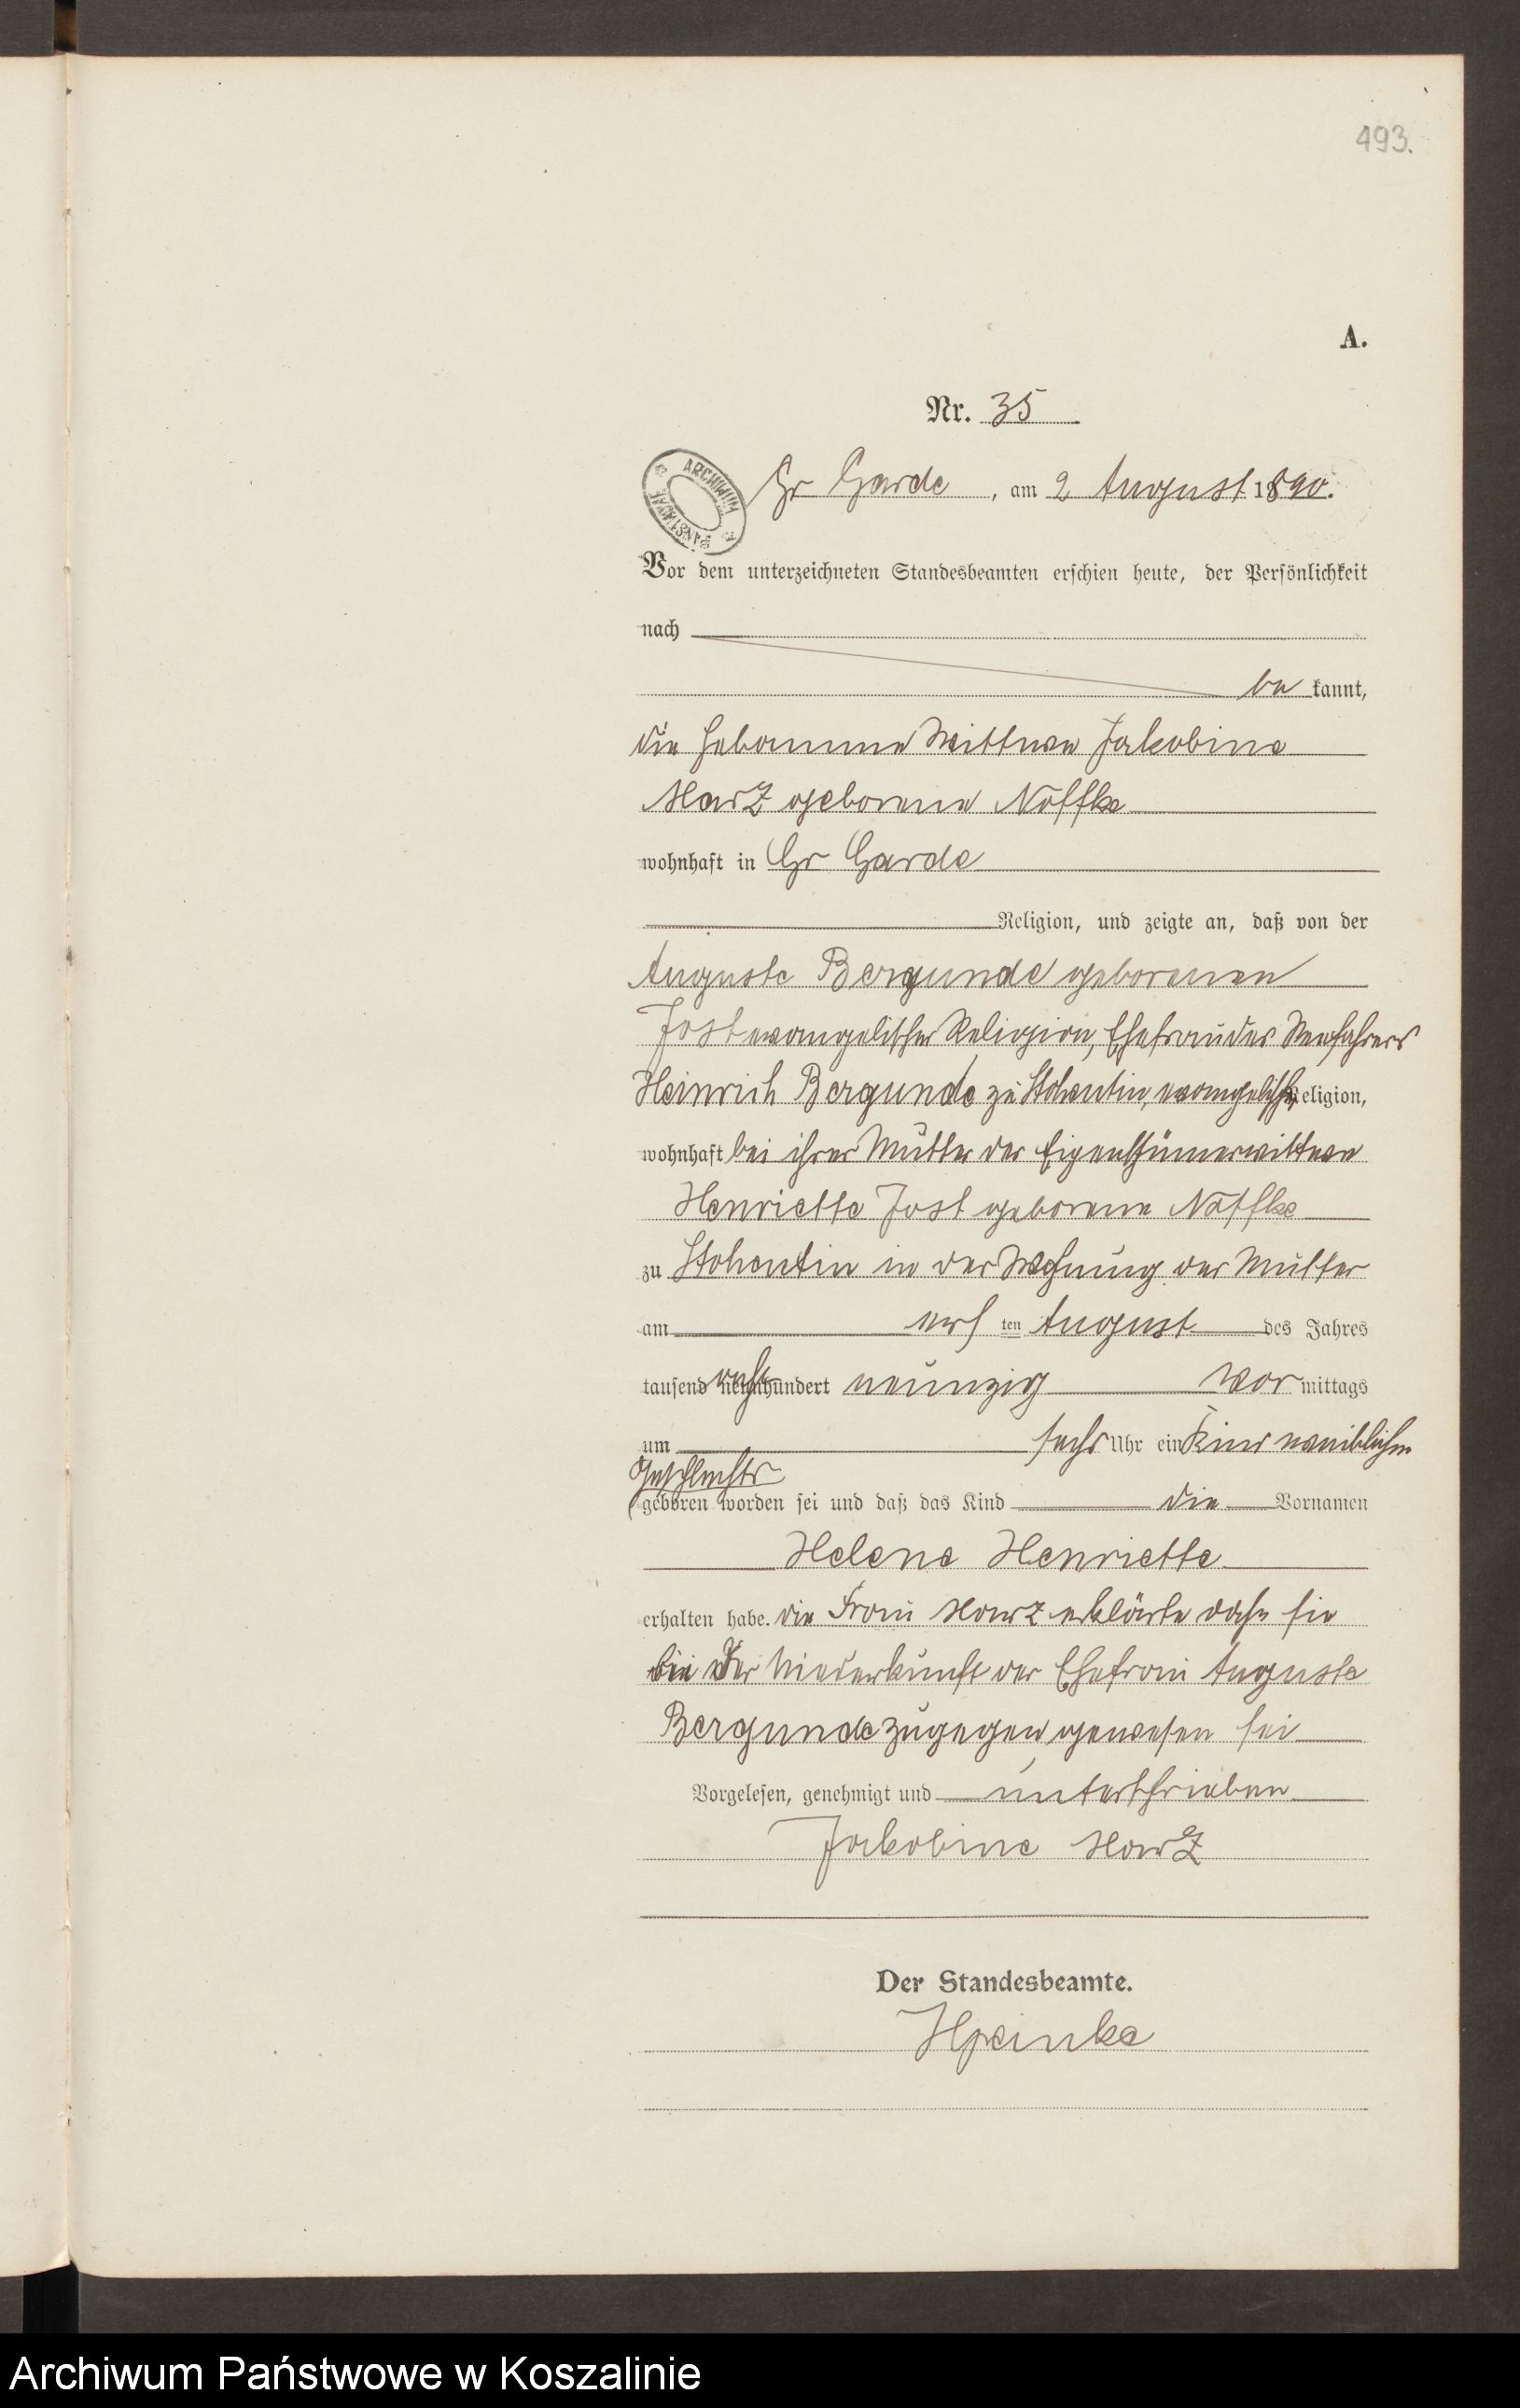 493.
A.
Nr. 35
ARCHIWUM PAŃSTWOWE
Gr Garde, am 2 August 1890.
Vor dem unterzeichneten Standesbeamten erschien heute, der Persönlichkeit
nach
be kannt,
die Hebamme Wittwe Jakobine
Harz geborene Noffke
wohnhaft in Gr Garde
Religion, und zeigte an, daß von der
Auguste Bergunde geborenen
Jost evangelischer Religion, Ehefrau des Seefahrers
Heinrich Bergunde zu Stohentin, evangelischer Religion,
wohnhaft bei ihrer Mutter der Eigenthümerwittwe
Henriette Jost geborene Noffke
zu Stohentin in der Wohnung der Mutter
am ersten August des Jahres
tausend acht hundert neunzig Vor mittags
um sechs Uhr ein Kind weiblichen
Geschlechts
geboren worden sei und daß das Kind die Vornamen
Helene Henriette
erhalten habe. die Frau Harz erklärte daß sie
bei der Niederkunft der Ehefrau Auguste
Bergunde zugegen gewesen sei
Vorgelesen, genehmigt und unterschrieben
Jakobine Harz
Der Standesbeamte.
Archiwum Państwowe w Koszalinie